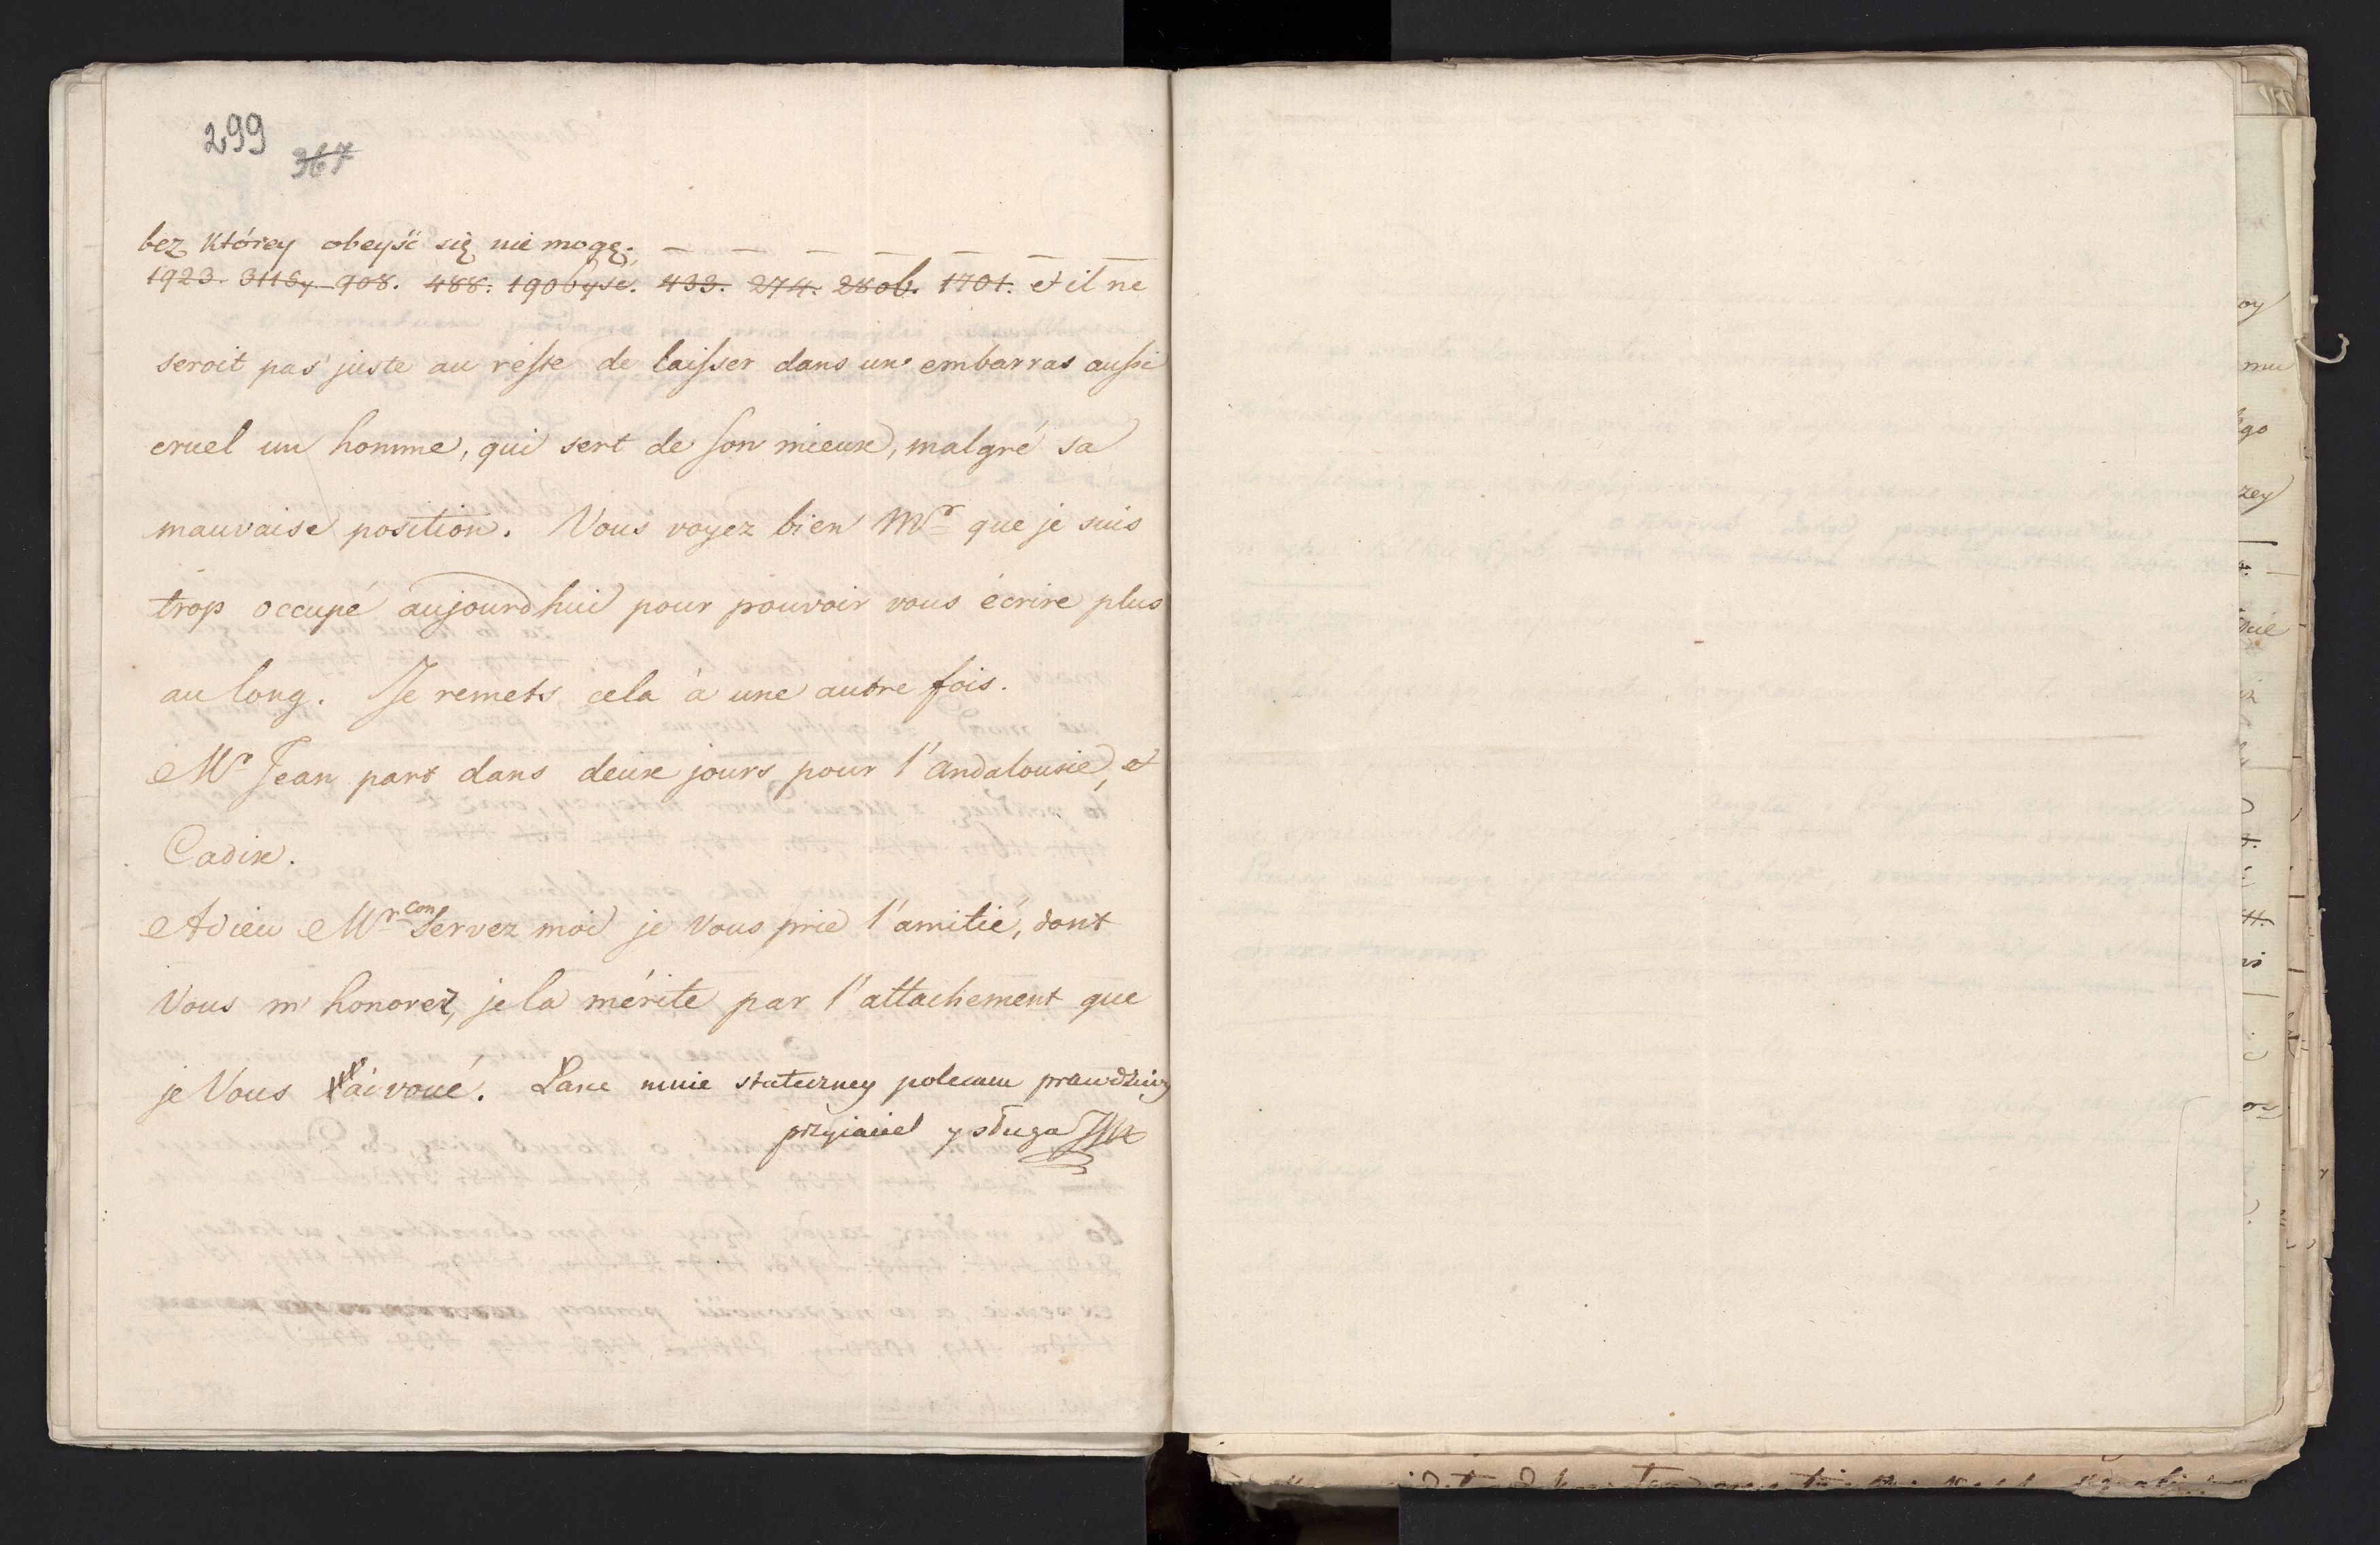 299
367
bez którey obeyść się nie mogę. — — — — — — —
1923. 311 Sy 908. 488. 190 byść. 433. 274. 28 ob. 1701. et il ne
seroit pas juste au reste de laisser dans un embarras aussi
cruel un homme, qui sert de son mieux, malgré sa
mauvaise position. Vous voyez bien Mr que je suis
trop occupé aujourdhui pour pouvoir vous écrire plus
au long. Je remets cela à une autre fois.
Mr Jean part dans deux jours pour l'andalousie, et
Cadix.
Adieu Mr conservez moi je vous prie l'amitié, dont
Vous m'honorez, je la mérite par l'attachement que
je Vous ai voué. Łasce mnie stateczney polecam prawdziwy
przyiaciel y sługa